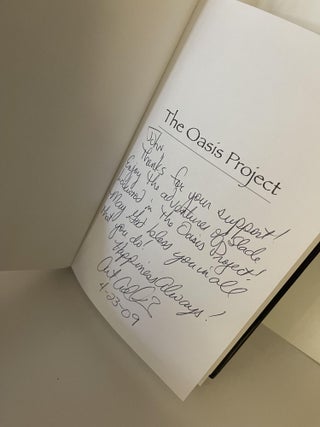 The Oasis Project
John,
Thanks for your support!
Enjoy the adventures of Slade
Lockwood in The Oasis Project!
May God bless you in all
that you do!
Happiness Always!
4-23-09